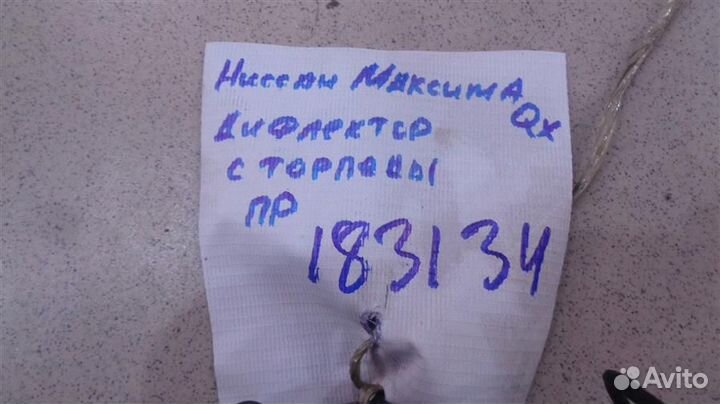 Ниссан Максима
QX
Дифлектор
с торпеды
пр
183134
Avito